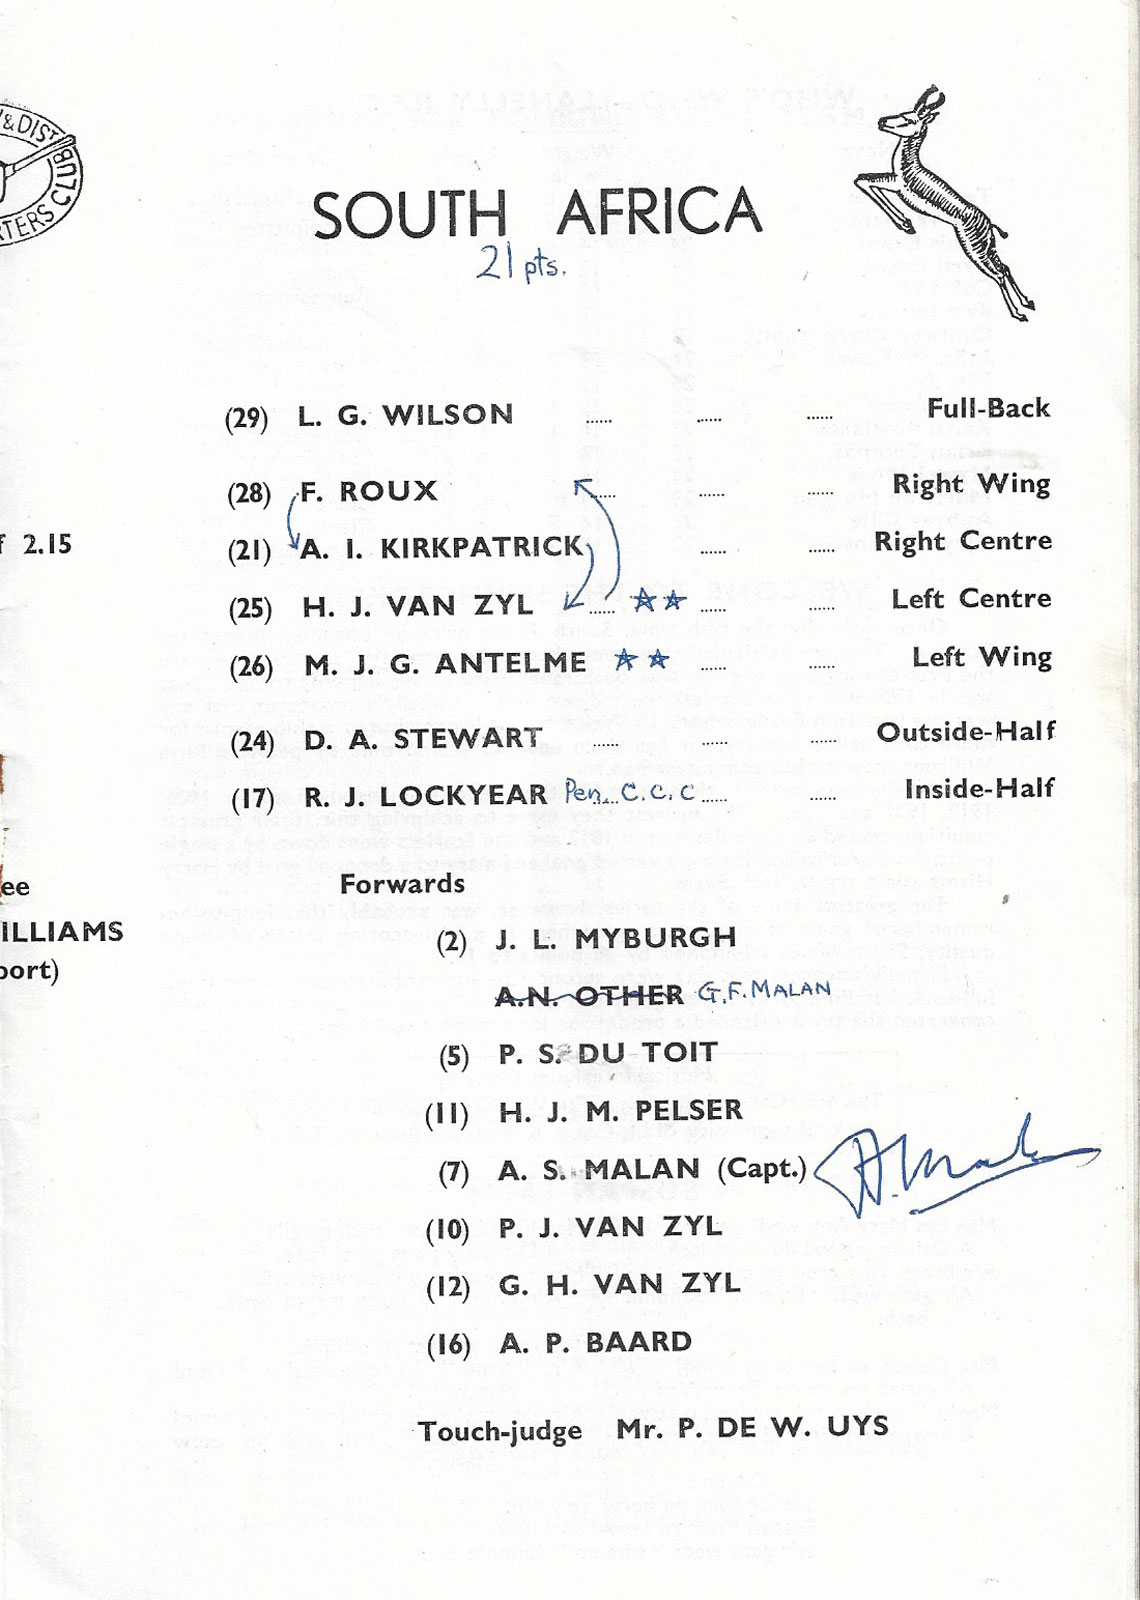 & DIST
CLUB
SOUTH AFRICA
21 pts.
(29) L. G. WILSON ...... ...... ...... Full-Back
(28) F. ROUX ...... ...... ...... Right Wing
f 2.15
(21) A. I. KIRKPATRICK ...... ...... Right Centre
(25) H. J. VAN ZYL ...... ...... ...... Left Centre
(26) M. J. G. ANTELME ...... ...... Left Wing
(24) D. A. STEWART ...... ...... ...... Outside-Half
(17) R. J. LOCKYEAR Pen. C. C. C ...... ...... Inside-Half
ee
Forwards
ILLIAMS
(2) J. L. MYBURGH
port)
A.N. OTHER G.F. MALAN
(5) P. S. DU TOIT
(11) H. J. M. PELSER
(7) A. S. MALAN (Capt.) A. Malan
(10) P. J. VAN ZYL
(12) G. H. VAN ZYL
(16) A. P. BAARD
Touch-judge Mr. P. DE W. UYS